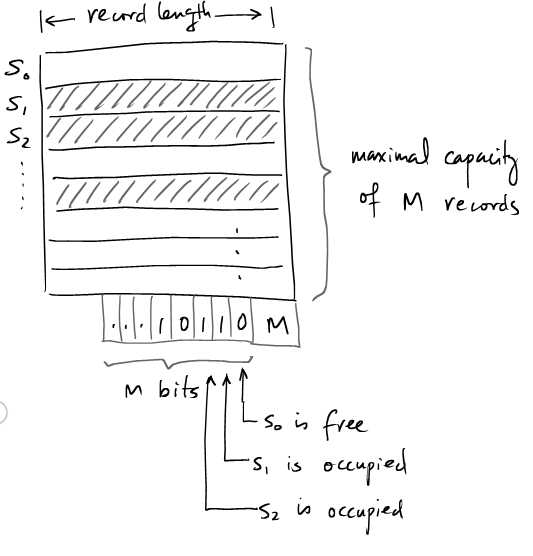 record length
S₀
S₁
S₂
maximal capacity
of M records
... 1 0 1 1 0 M
M bits
S₀ is free
S₁ is occupied
S₂ is occupied